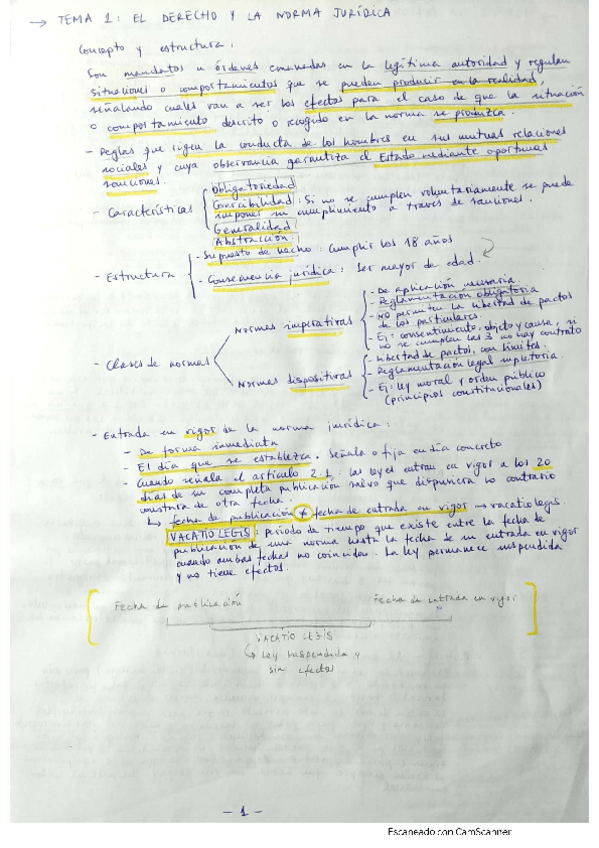 → TEMA 1: EL DERECHO Y LA NORMA JURÍDICA
Concepto y estructura.
Son mandatos u órdenes emanadas en la legítima autoridad y regulan
situaciones o comportamientos que se pueden producir en la realidad,
señalando cuales van a ser los efectos para el caso de que la situación
o comportamiento descrito o recogido en la norma se produzca.
- Reglas que rigen la conducta de los hombres en sus mutuas relaciones
sociales y cuya observancia garantiza el Estado mediante oportunas
sanciones.
- Características
Obligatoriedad
Coercibilidad: Si no se cumplen voluntariamente se puede
imponer su cumplimiento a través de sanciones.
Generalidad
Abstracción.
- Estructura
- Supuesto de hecho: Cumplir los 18 años
- Consecuencia jurídica: Ser mayor de edad.
- Clases de normas
Normas imperativas
- De aplicación necesaria.
- Reglamentación obligatoria
- No permiten la libertad de pactos
de los particulares.
- Ej: consentimiento, objeto y causa, si
no se cumplen las 3 no hay contrato
Normas dispositivas
- libertad de pactos, con límites.
- Reglamentación legal supletoria.
- Ej: ley moral y orden público
(principios constitucionales)
- Entrada en vigor de la norma jurídica:
- De forma inmediata
- El día que se establezca. Señala o fija un día concreto
- Cuando señala el artículo 2.1: las leyes entran en vigor a los 20
días de su completa publicación salvo que dispusiera lo contrario
de otra fecha.
↳ fecha de publicación ≠ fecha de entrada en vigor → vacatio legis
VACATIO LEGIS: período de tiempo que existe entre la fecha de
publicación de una norma hasta la fecha de su entrada en vigor
cuando ambas fechas no coinciden. La ley permanece suspendida
y no tiene efectos.
Fecha de publicación Fecha de entrada en vigor
VACATIO LEGIS
↳ Ley suspendida y
sin efectos
- 1 -
Escaneado con CamScanner